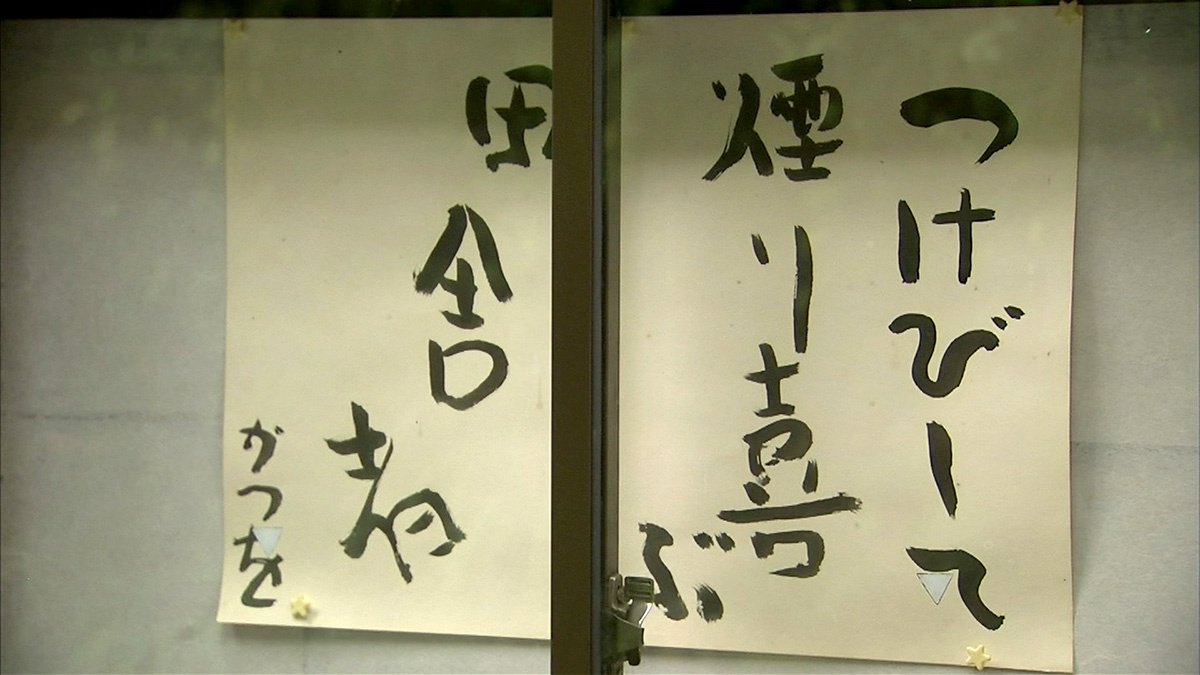 つけびーて
煙り喜
ぶ
田舎
者
かつを